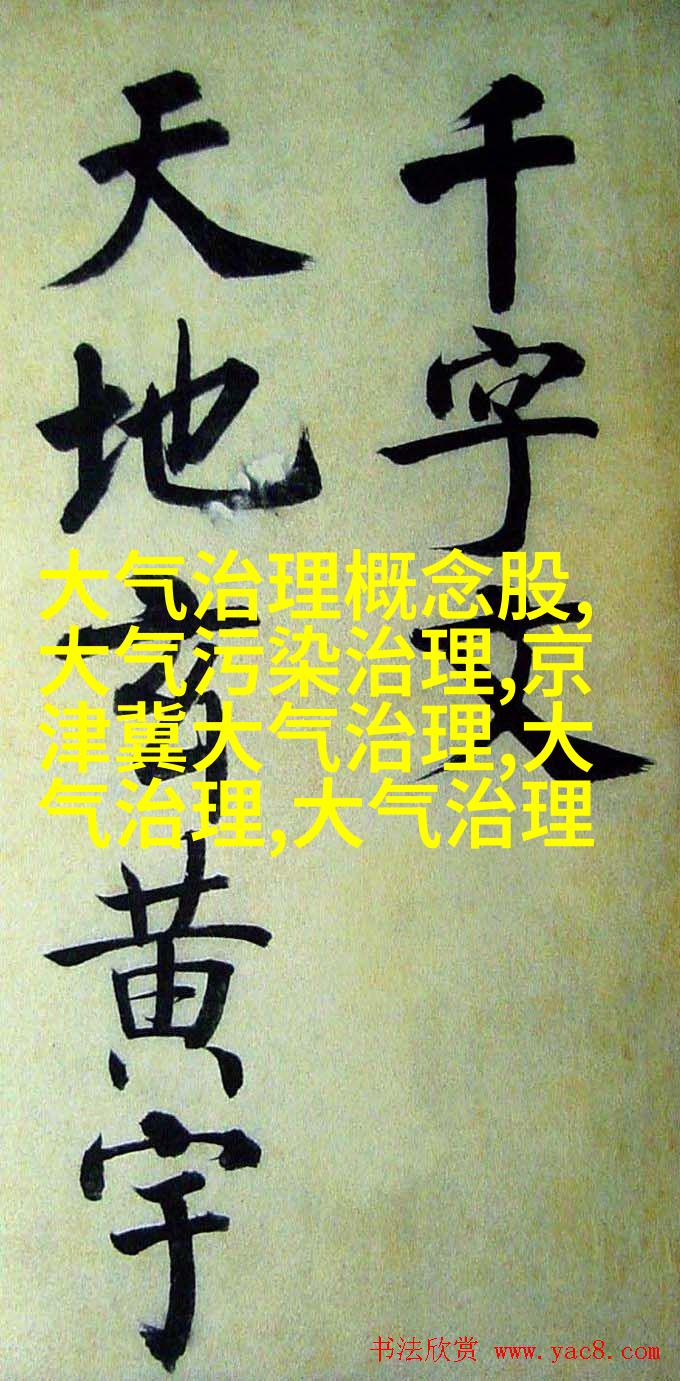 千字文
天地玄黄宇
大气治理概念股,
大气污染治理,京
津冀大气治理,大
气治理,大气治理
书法欣赏 www.yac8.com